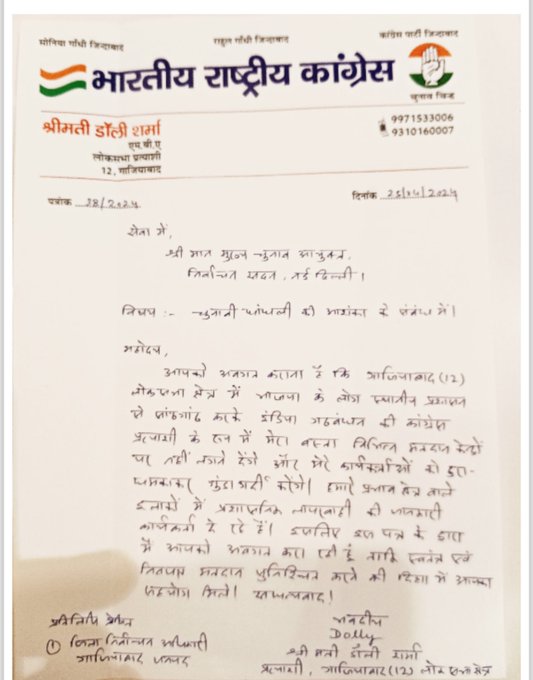 सोनिया गाँधी जिन्दाबाद
राहुल गाँधी जिन्दाबाद
कांग्रेस पार्टी जिन्दाबाद
भारतीय राष्ट्रीय कांग्रेस
चुनाव चिन्ह
श्रीमती डॉली शर्मा
एम.बी.ए
लोकसभा प्रत्याशी
12, गाजियाबाद
9971533006
9310160007
पत्रांक 28/2024
दिनांक 25/04/2024
सेवा में,
श्री मान मुख्य चुनाव आयुक्त,
निर्वाचन सदन, नई दिल्ली।
विषय :- चुनावी धांधली की आशंका के संबंध में।
महोदय,
आपको अवगत कराना है कि गाजियाबाद (12)
लोकसभा क्षेत्र में भाजपा के लोग स्थानीय प्रशासन
से सांठगांठ करके इंडिया गठबंधन की कांग्रेस
प्रत्याशी के रूप में मेरा बस्ता विभिन्न मतदान केन्द्रों
पर नहीं लगाने देंगे और मेरे कार्यकर्ताओं को डरा-
धमकाकर गुंडागर्दी करेंगे। हमारे प्रभाव क्षेत्र वाले
इलाकों में प्रशासनिक लापरवाही की जानकारी
कार्यकर्ता दे रहे हैं। इसलिए इस पत्र के द्वारा
मैं आपको अवगत करा रही हूं ताकि स्वतंत्र एवं
निष्पक्ष मतदान सुनिश्चित करने की दिशा में आपका
सहयोग मिले। सधन्यवाद!
प्रतिलिपि प्रेषित
① जिला निर्वाचन अधिकारी
गाजियाबाद जनपद
भवदीय
Dolly
श्री मती डॉली शर्मा
प्रत्याशी, गाजियाबाद (12) लोक सभा क्षेत्र